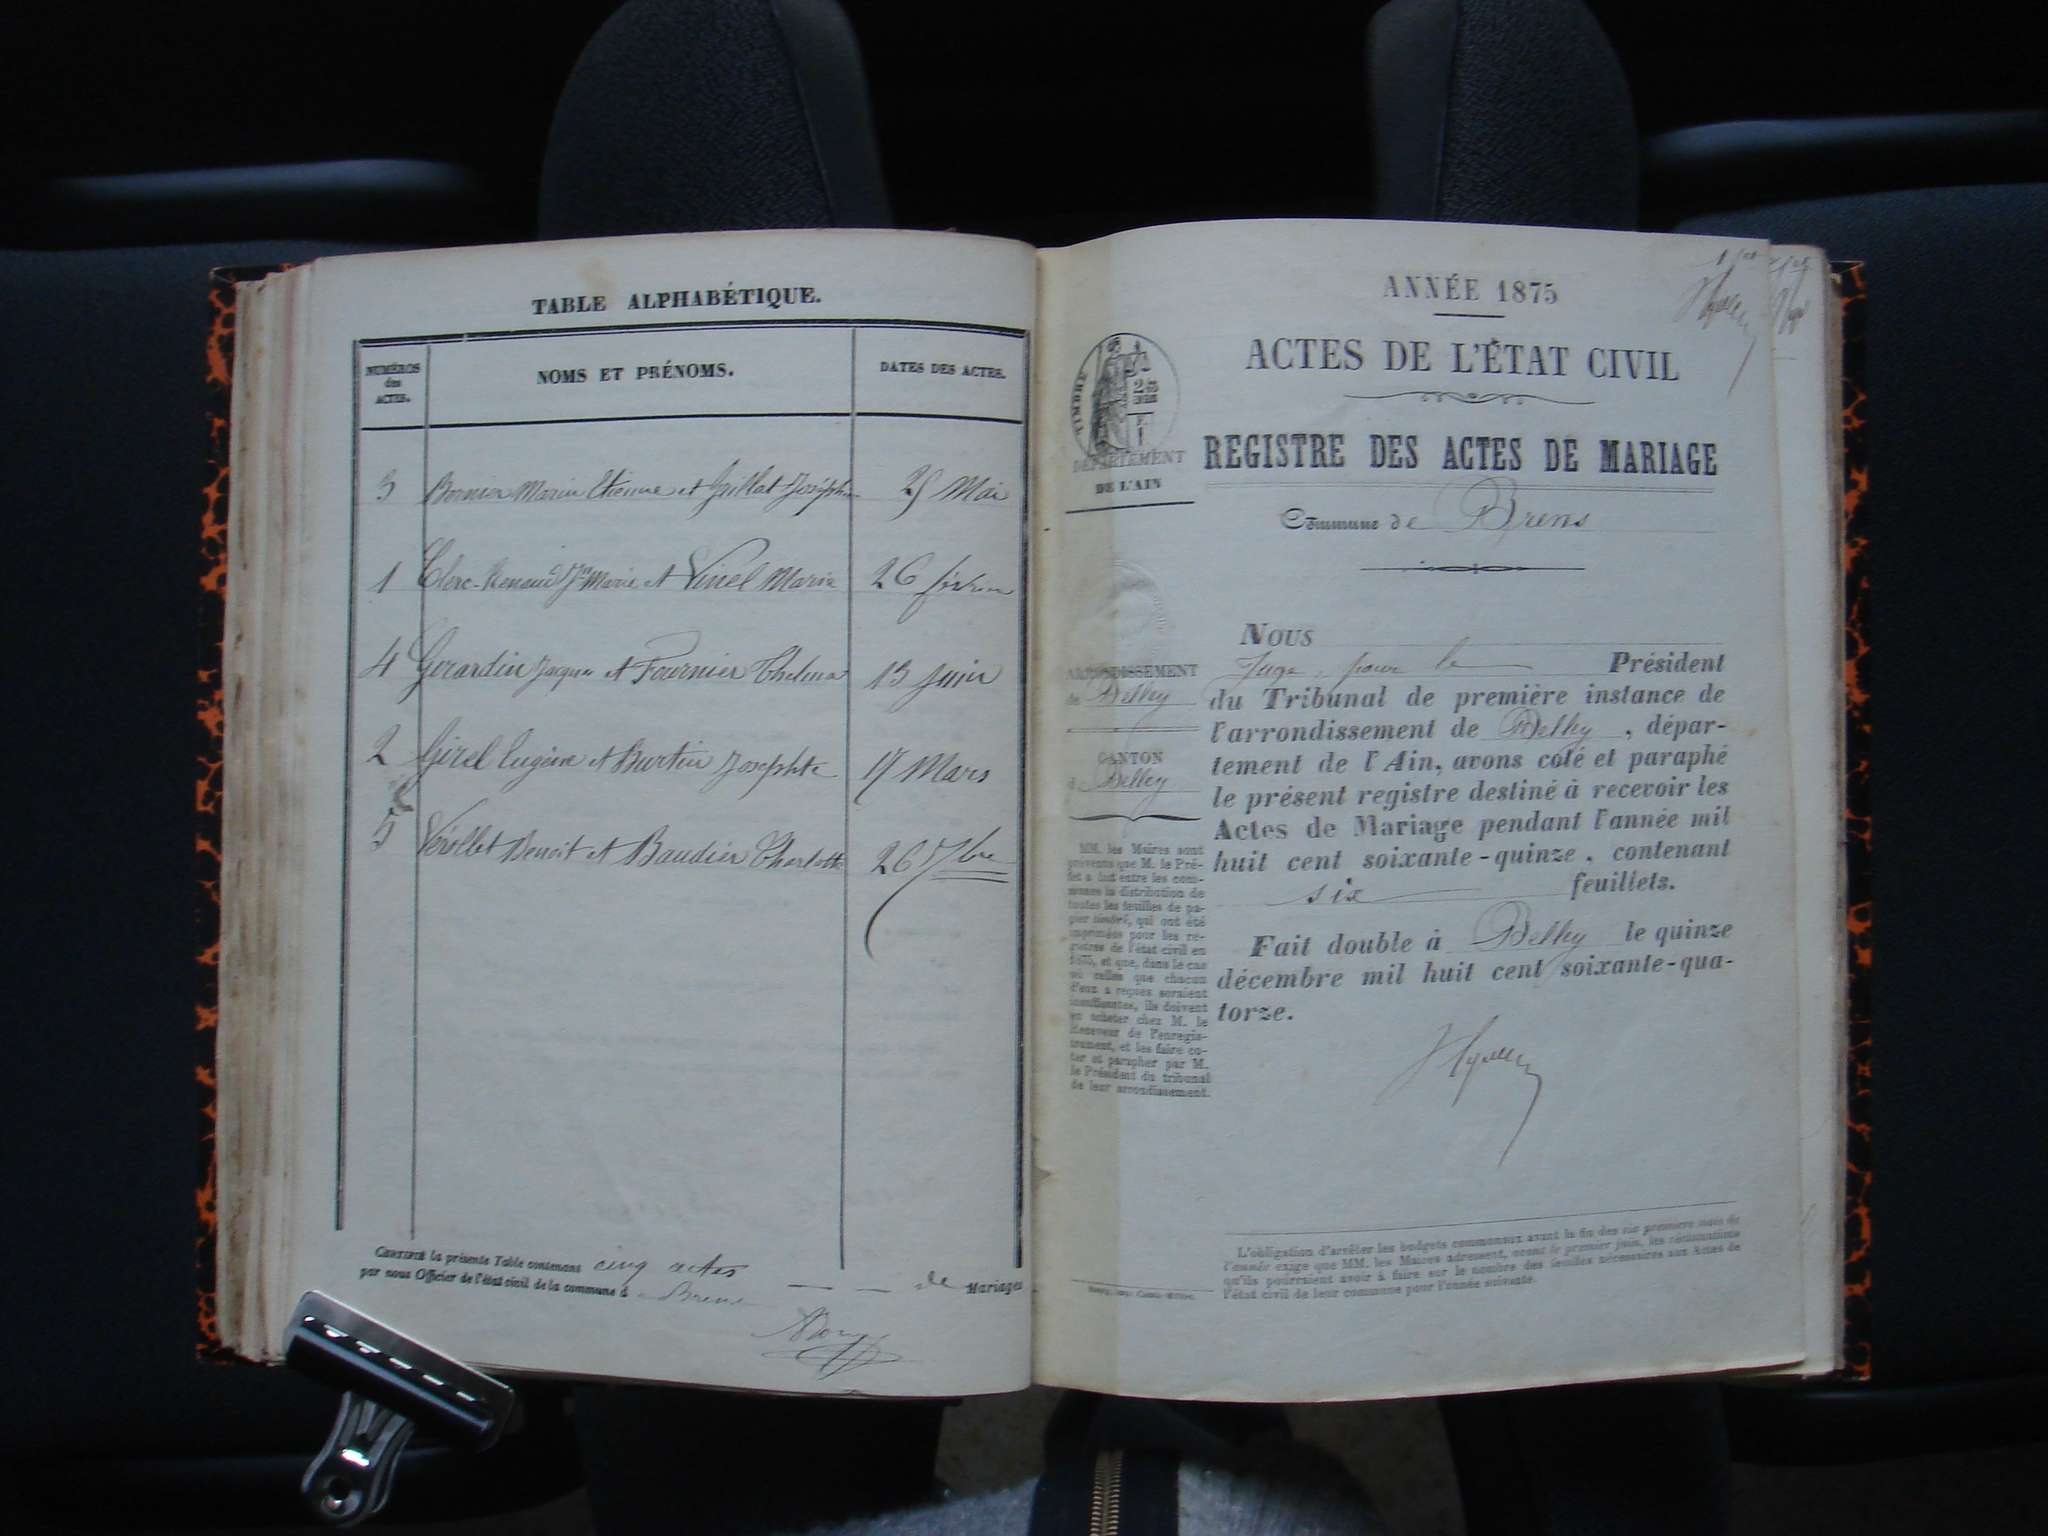 TABLE ALPHABÉTIQUE.
NUMÉROS
des
ACTES.
NOMS ET PRÉNOMS.
DATES DES ACTES.
3 Bornier Marin Etienne et Guillat Josephe 25 Mai
1 Clerc-Renaud Jn Marie et Vinel Marie 26 février
4 Gerardin Jacques et Fournier Thelma 13 Juin
2 Girel Eugène et Burtin Josephte 17 Mars
5 Vérollet Benoit et Baudier Charlotte 26 7bre
CERTIFIÉ la présente Table contenant cinq actes de Mariages
par nous Officier de l'état civil de la commune d Brens
ANNÉE 1875
ACTES DE L'ÉTAT CIVIL
REGISTRE DES ACTES DE MARIAGE
Commune de Brens
DÉPARTEMENT
DE L'AIN
ARRONDISSEMENT
de Belley
CANTON
d Belley
MM. les Maires sont
prévenus que M. le Pré-
fet a fait entre les com-
munes la distribution de
toutes les feuilles de pa-
pier timbré, qui ont été
imprimées pour les re-
gistres de l'état civil en
1875, et que, dans le cas
où celles que chacun
d'eux a reçues seraient
insuffisantes, ils doivent
en acheter chez M. le
Receveur de l'enregis-
trement, et les faire co-
ter et parapher par M.
le Président du tribunal
de leur arrondissement.
NOUS
Juge, pour le Président
du Tribunal de première instance de
l'arrondissement de Belley, dépar-
tement de l'Ain, avons coté et paraphé
le présent registre destiné à recevoir les
Actes de Mariage pendant l'année mil
huit cent soixante-quinze, contenant
six feuillets.
Fait double à Belley le quinze
décembre mil huit cent soixante-qua-
torze.
L'obligation d'arrêter les budgets communaux avant la fin des six premiers mois de
l'année exige que MM. les Maires adressent, avant le premier juin, les réclamations
qu'ils pourraient avoir à faire sur le nombre des feuilles nécessaires aux Actes de
l'état civil de leur commune pour l'année suivante.